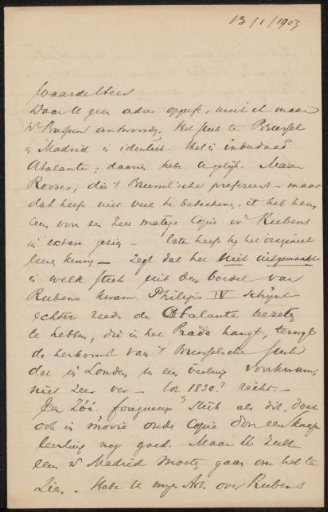 13/1/1903
Waarde Heer
Daar U geen adres opgeeft, moet ik maar
antwoorden. Het stuk te Brussel
& Madrid is identiek. Het is inderdaad
Atalante; daarin hebt U gelijk. Maar
Rooses, die 't Brusselsche prefereert – maar
dat heeft niet veel te beteekenen, ik heb hem
eens voor een zeer matige Copie v. Rubens
in extase gezien – later heeft hij het origineel
leeren kennen – zegt dat het niet uitgemaakt
is welk stuk uit den boedel van
Rubens kwam. Philips IV schijnt
echter reeds de Atalante bezeten
te hebben, die in het Prado hangt, terwijl
de herkomst van 't Brusselsche stuk
dat in Londen in een veiling voorkwam,
niet zeer ver – tot 1830? reikt. –
En zóó "fougueux" stuk als dit, doet
ook in mooie oude Copie door een knap
leerling nog goed. Maar U zult
eens n. Madrid moeten gaan om het te
zien. – Hebt U mijn Art. over Rubens